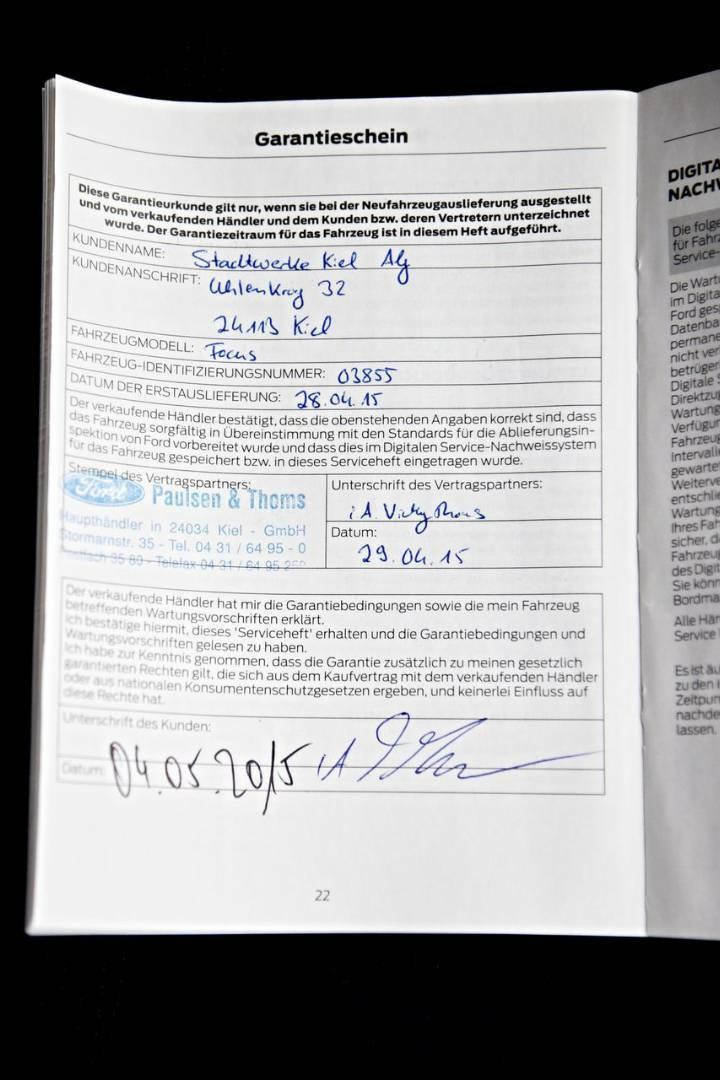 Garantieschein
Diese Garantieurkunde gilt nur, wenn sie bei der Neufahrzeugauslieferung ausgestellt
und vom verkaufenden Händler und dem Kunden bzw. deren Vertretern unterzeichnet
wurde. Der Garantiezeitraum für das Fahrzeug ist in diesem Heft aufgeführt.
KUNDENNAME: Stadtwerke Kiel AG
KUNDENANSCHRIFT: Uhlenkrog 32
24113 Kiel
FAHRZEUGMODELL: Focus
FAHRZEUG-IDENTIFIZIERUNGSNUMMER: 03855
DATUM DER ERSTAUSLIEFERUNG: 28.04.15
Der verkaufende Händler bestätigt, dass die obenstehenden Angaben korrekt sind, dass
das Fahrzeug sorgfältig in Übereinstimmung mit den Standards für die Ablieferungsin-
spektion von Ford vorbereitet wurde und dass dies im Digitalen Service-Nachweissystem
für das Fahrzeug gespeichert bzw. in dieses Serviceheft eingetragen wurde.
Stempel des Vertragspartners:
Ford Paulsen & Thoms
Haupthändler in 24034 Kiel - GmbH
Stormarnstr. 35 - Tel. 04 31 / 64 95 - 0
Postfach 35 80 - Telefax 04 31 / 64 95
Unterschrift des Vertragspartners:
i A. Vicky
Datum:
29.04.15
Der verkaufende Händler hat mir die Garantiebedingungen sowie die mein Fahrzeug
betreffenden Wartungsvorschriften erklärt.
Ich bestätige hiermit, dieses 'Serviceheft' erhalten und die Garantiebedingungen und
Wartungsvorschriften gelesen zu haben.
Ich habe zur Kenntnis genommen, dass die Garantie zusätzlich zu meinen gesetzlich
garantierten Rechten gilt, die sich aus dem Kaufvertrag mit dem verkaufenden Händler
oder aus nationalen Konsumentenschutzgesetzen ergeben, und keinerlei Einfluss auf
diese Rechte hat.
Unterschrift des Kunden:
Datum: 04.05.2015 iA
22
DIGITA
NACHW
Die folge
für Fahrz
Service-
Die Wart
im Digita
Ford ges
Datenba
permane
nicht ver
betrüger
Digitale S
Direktzu
Wartung
Verfügur
Fahrzeu
Intervalle
gewarte
Weiterve
entschli
Wartung
Ihres Fah
sicher, d
Fahrzeu
des Digit
Sie könn
Bordma
Alle Här
Service
Es ist äu
zu den i
Zeitpun
nachde
lassen.